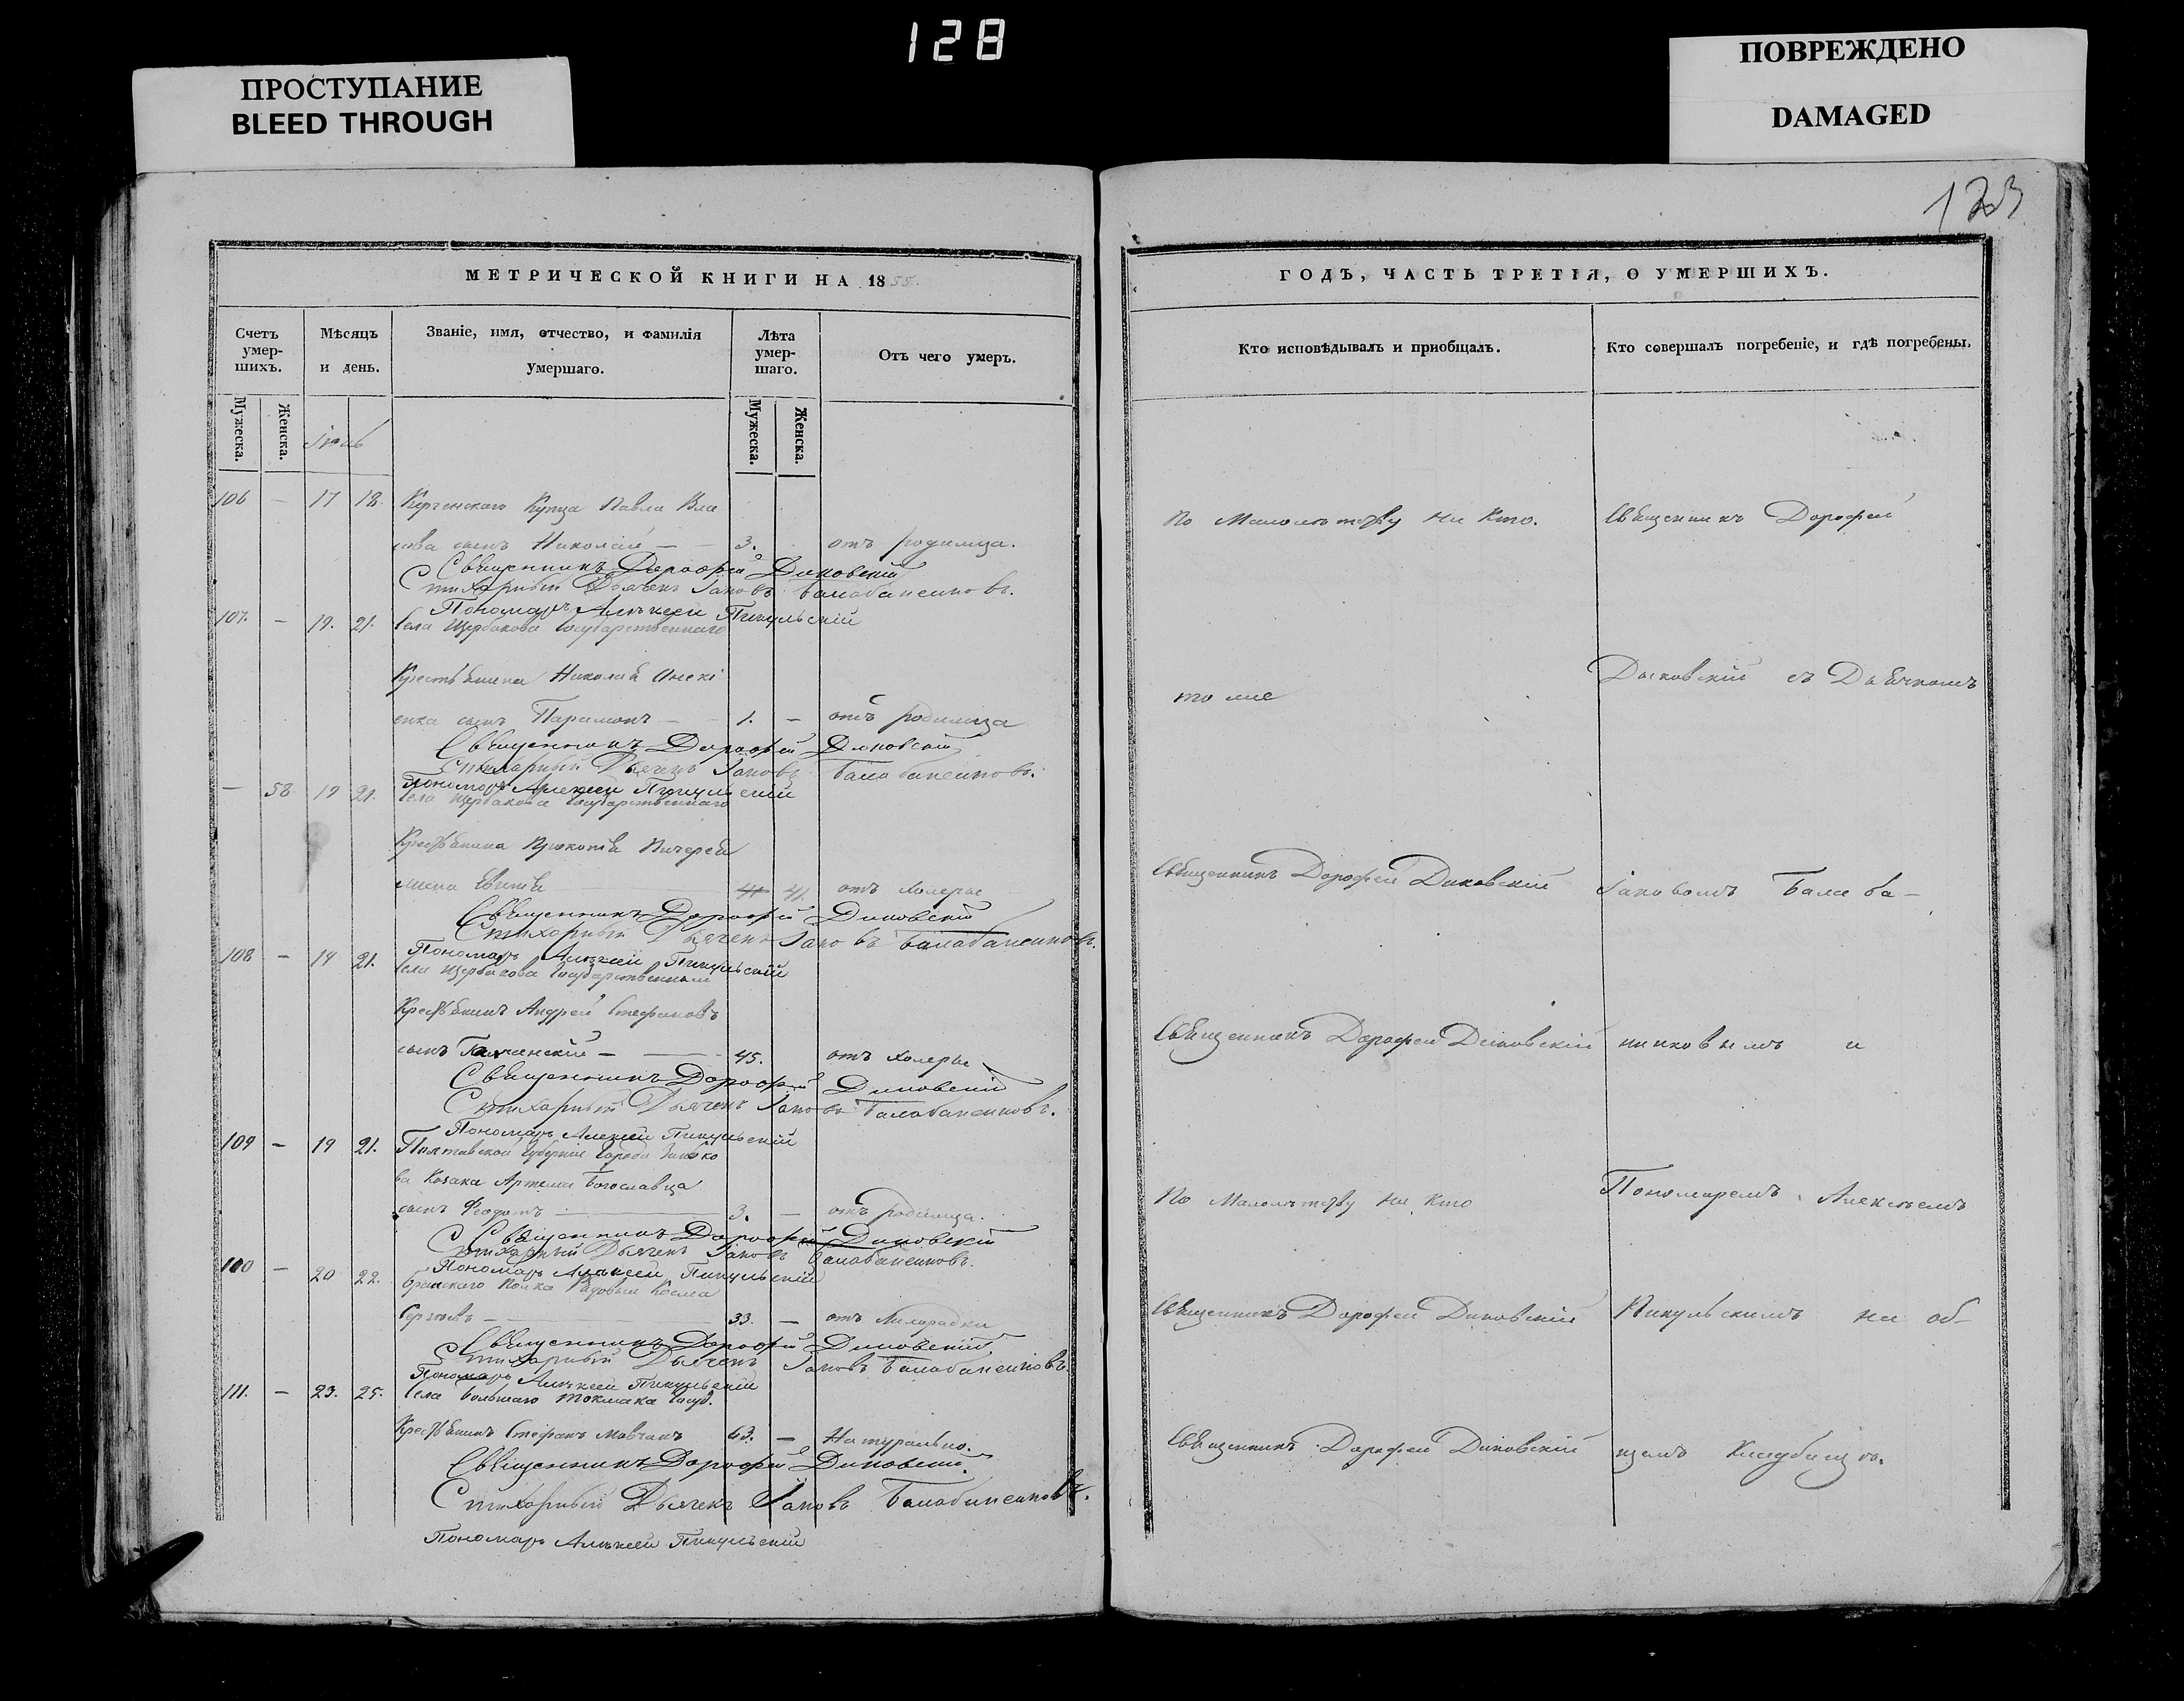 128
ПРОСТУПАНИЕ
BLEED THROUGH
ПОВРЕЖДЕНО
DAMAGED
123
МЕТРИЧЕСКОЙ КНИГИ НА 1855.
Счетъ умер- шихъ.
Мѣсяцъ и день.
Званіе, имя, отчество, и фамилія умершаго.
Лѣта умер- шаго.
Отъ чего умеръ.
Мужеска.
Женска.
Мужеска.
Женска.
106 — 17 18. Купца Павла
сынъ Николай — 3. отъ родимца.
Священникъ Дорофей Диковскій
Стихарный Дьячекъ Іаковъ
Пономарь Алексей Пикульскій
107. — 19. 21. Села Щербакова Государственнаго
Крестьянина Николая
сынъ Парамонъ — 1. — отъ родимца
Священникъ Дорофей Диковскій
Стихарный Дьячекъ Іаковъ
Пономарь Алексей Пикульскій
— 58 19 21. Села Щербакова Государственнаго
Крестьянина
жена Евгенія 41 отъ холеры
Священникъ Дорофей Диковскій
Стихарный Дьячекъ Іаковъ
Пономарь Алексей Пикульскій
108 — 19 21. Села Щербакова Государственный
Крестьянинъ Андрей Стефановъ
сынъ — 45. отъ холеры
Священникъ Дорофей Диковскій
Стихарный Дьячекъ Іаковъ
Пономарь Алексей Пикульскій
109 — 19 21. Полтавской Губерніи Города Зинько
ва Козака Артема Богославца
сынъ Феодотъ 3. — отъ родимца.
Священникъ Дорофей Диковскій
Стихарный Дьячекъ Іаковъ
Пономарь Алексей Пикульскій
— 20 22. Полка Рядовый Косма
Сергеевъ 33. — отъ лихорадки
Священникъ Дорофей Диковскій
Стихарный Дьячекъ Іаковъ
Пономарь Алексей Пикульскій
111. — 23. 25. Села Большаго Токмака Госуд.
Крестьянинъ Стефанъ Мовчанъ 63. — Натурально.
Священникъ Дорофей Диковскій
Стихарный Дьячекъ Іаковъ
Пономарь Алексей Пикульскій
ГОДЪ, ЧАСТЬ ТРЕТІЯ, О УМЕРШИХЪ.
Кто исповѣдывалъ и пріобщалъ.
Кто совершалъ погребеніе, и гдѣ погребены.
По Малолетству ни кто. Священникъ Дорофей
тоже Диковскій съ Дьячкомъ
Священникъ Дорофей Диковскій Іаковомъ Балаба-
Священникъ Дорофей Диковскій и
По Малолетству ни кто Пономаремъ Алексеемъ
Священникъ Дорофей Диковскій Пикульскимъ на об-
Священникъ Дорофей Диковскій щемъ Кладбище.